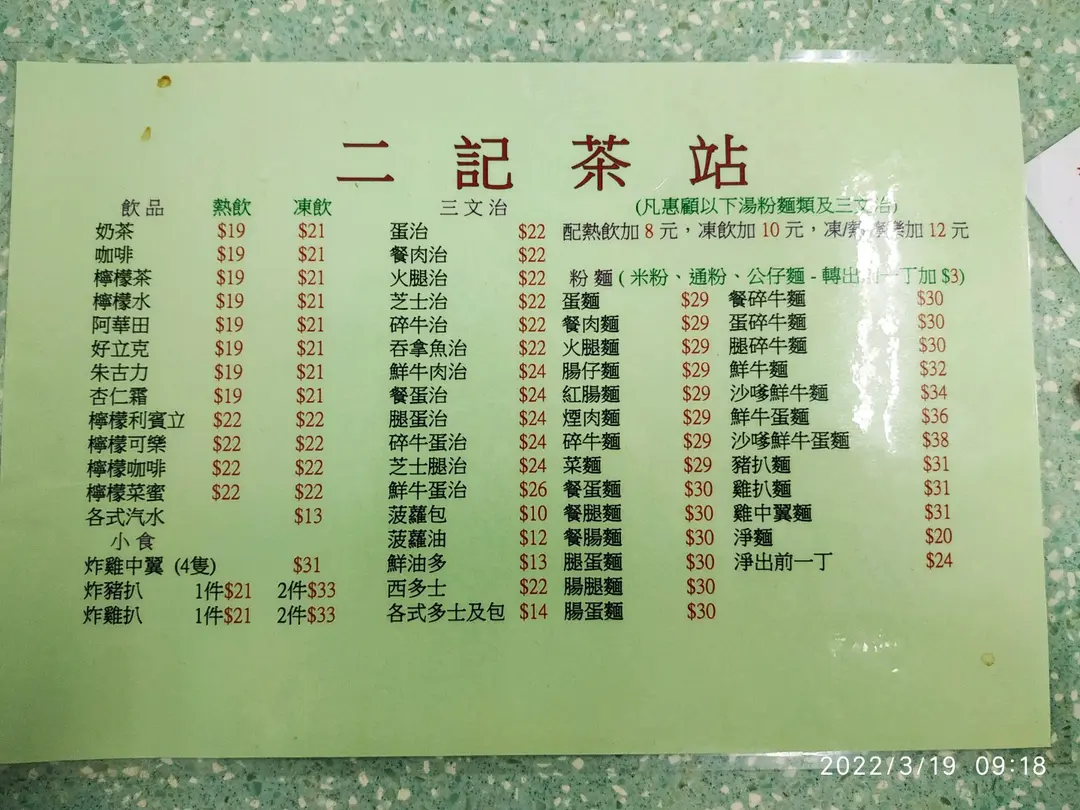 二記茶站
飲品 熱飲 凍飲
奶茶 $19 $21
咖啡 $19 $21
檸檬茶 $19 $21
檸檬水 $19 $21
阿華田 $19 $21
好立克 $19 $21
朱古力 $19 $21
杏仁霜 $19 $21
檸檬利賓立 $22 $22
檸檬可樂 $22 $22
檸檬咖啡 $22 $22
檸檬菜蜜 $22 $22
各式汽水 $13
小食
炸雞中翼 (4隻) $31
炸豬扒 1件$21 2件$33
炸雞扒 1件$21 2件$33
三文治
蛋治 $22
餐肉治 $22
火腿治 $22
芝士治 $22
碎牛治 $22
吞拿魚治 $22
鮮牛肉治 $24
餐蛋治 $24
腿蛋治 $24
碎牛蛋治 $24
芝士腿治 $24
鮮牛蛋治 $26
菠蘿包 $10
菠蘿油 $12
鮮油多 $13
西多士 $22
各式多士及包 $14
(凡惠顧以下湯粉麵類及三文治)
配熱飲加 8 元，凍飲加 10 元，凍/熱 樂加 12 元
粉麵 ( 米粉、通粉、公仔麵 - 轉出前一丁加 $3)
蛋麵 $29
餐肉麵 $29
火腿麵 $29
腸仔麵 $29
紅腸麵 $29
煙肉麵 $29
碎牛麵 $29
菜麵 $29
餐蛋麵 $30
餐腿麵 $30
餐腸麵 $30
腿蛋麵 $30
腸腿麵 $30
腸蛋麵 $30
餐碎牛麵 $30
蛋碎牛麵 $30
腿碎牛麵 $30
鮮牛麵 $32
沙嗲鮮牛麵 $34
鮮牛蛋麵 $36
沙嗲鮮牛蛋麵 $38
豬扒麵 $31
雞扒麵 $31
雞中翼麵 $31
淨麵 $20
淨出前一丁 $24
2022/3/19 09:18